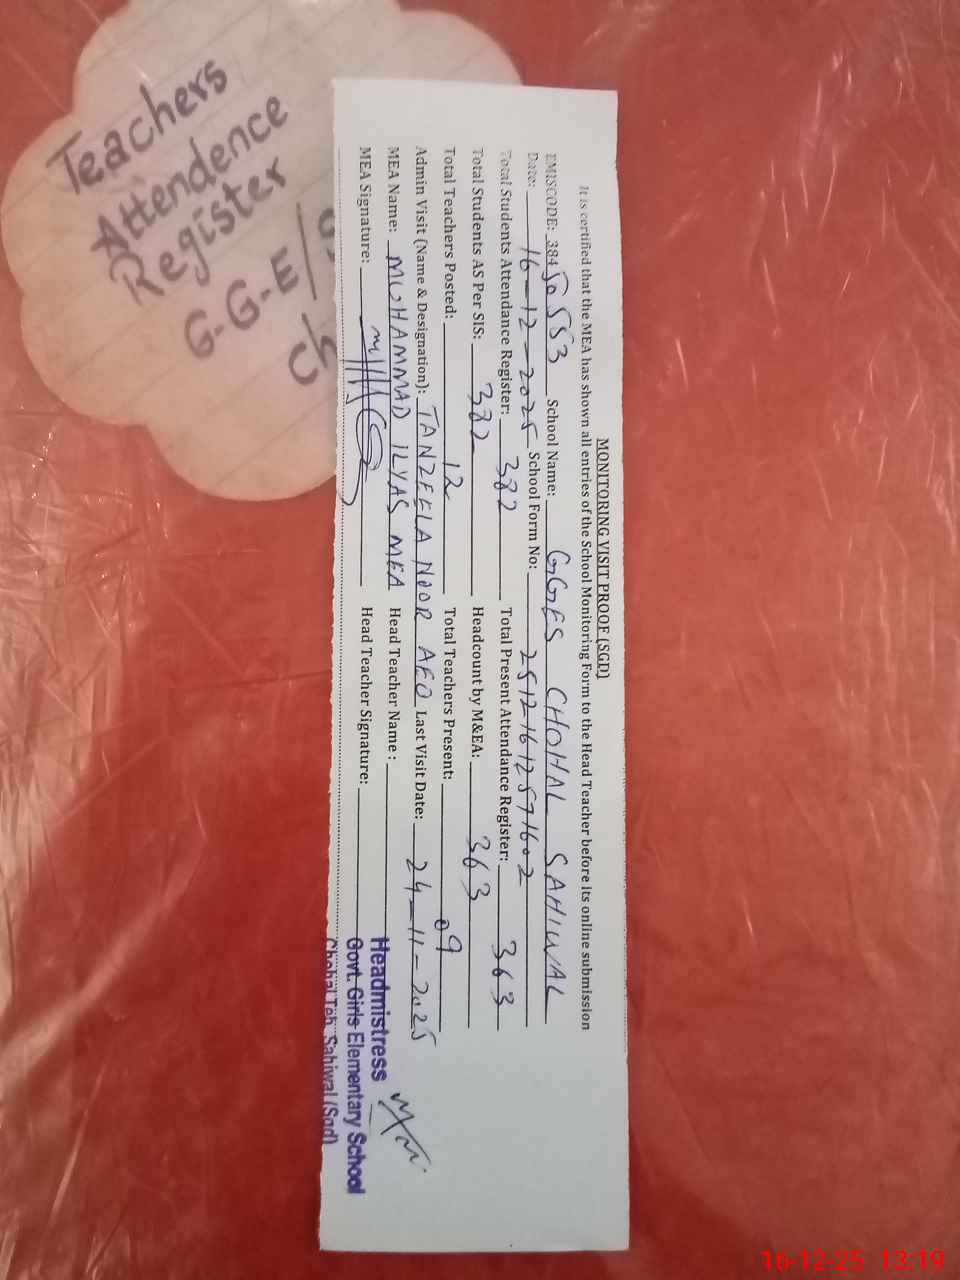 Teachers
Attendence
Register
G.G.E/S
Ch
MONITORING VISIT PROOF (SGD)
It is certified that the MEA has shown all entries of the School Monitoring Form to the Head Teacher before its online submission
EMISCODE: 38450553 School Name: GGES CHOHAL SAHIWAL
Date: 16-12-2025 School Form No: 25121612571602
Total Students Attendance Register: 382 Total Present Attendance Register: 363
Total Students AS Per SIS: 382 Headcount by M&EA: 363
Total Teachers Posted: 12 Total Teachers Present: 09
Admin Visit (Name & Designation): TANZEELA NOOR AEO Last Visit Date: 24-11-2025
MEA Name: MUHAMMAD ILYAS MEA Head Teacher Name :
MEA Signature: Head Teacher Signature:
Headmistress
Govt. Girls Elementary School
Chohal Teh. Sahiwal (Sgd)
16-12-25 13:19